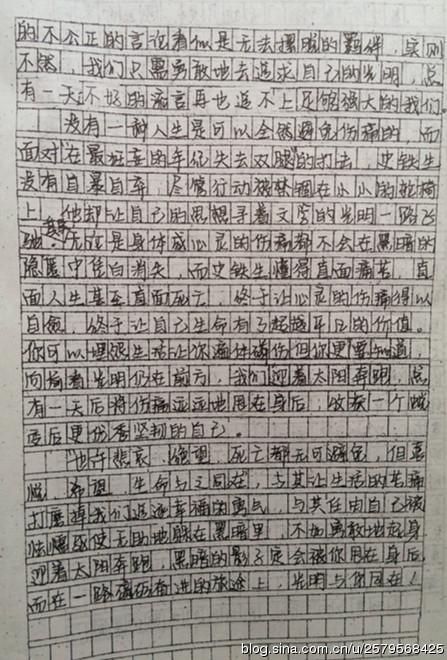 的不公正的言论看似是无法摆脱的羁绊，实则
不然，我们只需勇敢地去追求自己的光明，总
有一天不好的流言再也追不上足够强大的我们。
没有一种人生是可以全然避免伤痛的，而
面对在最狂妄的年纪失去双腿的打击，史铁生
没有自暴自弃，尽管行动被禁锢在小小的轮椅
上，他却让自己的思想寻着文学的光明一路飞
驰。无论是身体或心灵的伤痛都不会在黑暗的
隐匿中凭白消失，而史铁生懂得直面痛苦，直
面人生甚至直面死亡，终于让心灵的伤痛得以
自愈，终于让自己生命有了超越平凡的价值。
你可以埋怨生活让你遍体鳞伤但你更要知道，
向前看光明仍在前方，我们迎着太阳奔跑，总
有一天后将伤痛远远地甩在身后，收获一个
更优秀坚韧的自己。
也许悲哀、绝望、死亡都无可避免，但喜
悦、希望、生命与之同在，与其让生活的苦痛
打磨掉我们追逐幸福的勇气，与其任由自己被
怯懦驱使无助地躲在黑暗里，不如勇敢地起身
迎着太阳奔跑，黑暗的影子定会被你甩在身后
而在一路前进的旅途上，光明与你同在！
blog.sina.com.cn/u/2579568425